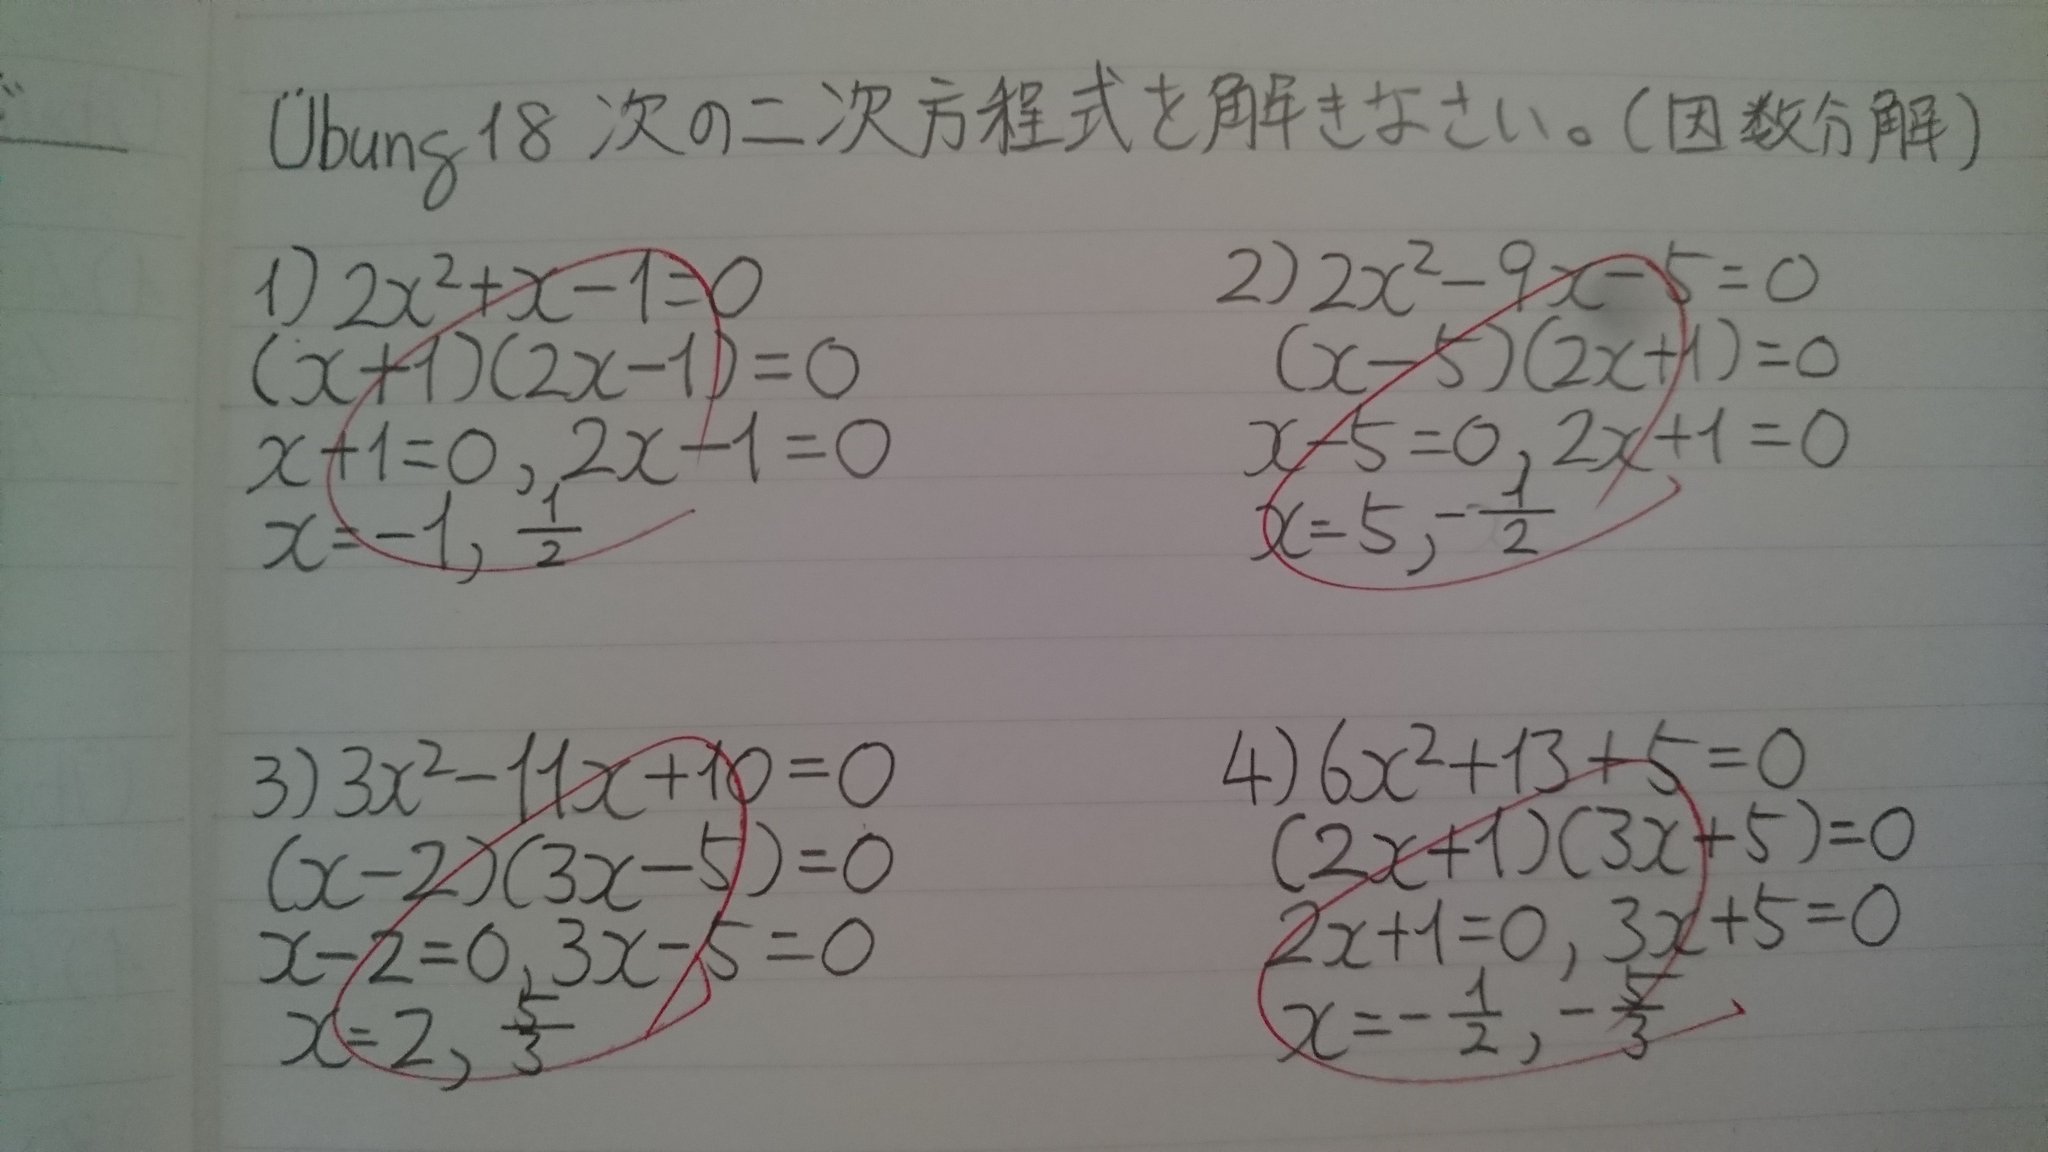 Übung 18 次の二次方程式を解きなさい。(因数分解)
1) 2x²+x-1=0
(x+1)(2x-1)=0
x+1=0, 2x-1=0
x=-1, 1/2
2) 2x²-9x-5=0
(x-5)(2x+1)=0
x-5=0, 2x+1=0
x=5, -1/2
3) 3x²-11x+10=0
(x-2)(3x-5)=0
x-2=0, 3x-5=0
x=2, 5/3
4) 6x²+13+5=0
(2x+1)(3x+5)=0
2x+1=0, 3x+5=0
x=-1/2, -5/3